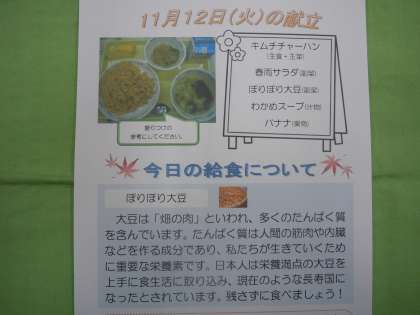 11月12日(火)の献立
キムチチャーハン
(主食・主菜)
春雨サラダ(副菜)
ぽりぽり大豆(副菜)
わかめスープ(汁物)
バナナ(果物)
盛りつけの
参考にしてください。
今日の給食について
ぽりぽり大豆
大豆は「畑の肉」といわれ、多くのたんぱく質
を含んでいます。たんぱく質は人間の筋肉や内臓
などを作る成分であり、私たちが生きていくため
に重要な栄養素です。日本人は栄養満点の大豆を
上手に食生活に取り込み、現在のような長寿国に
なったとされています。残さずに食べましょう！